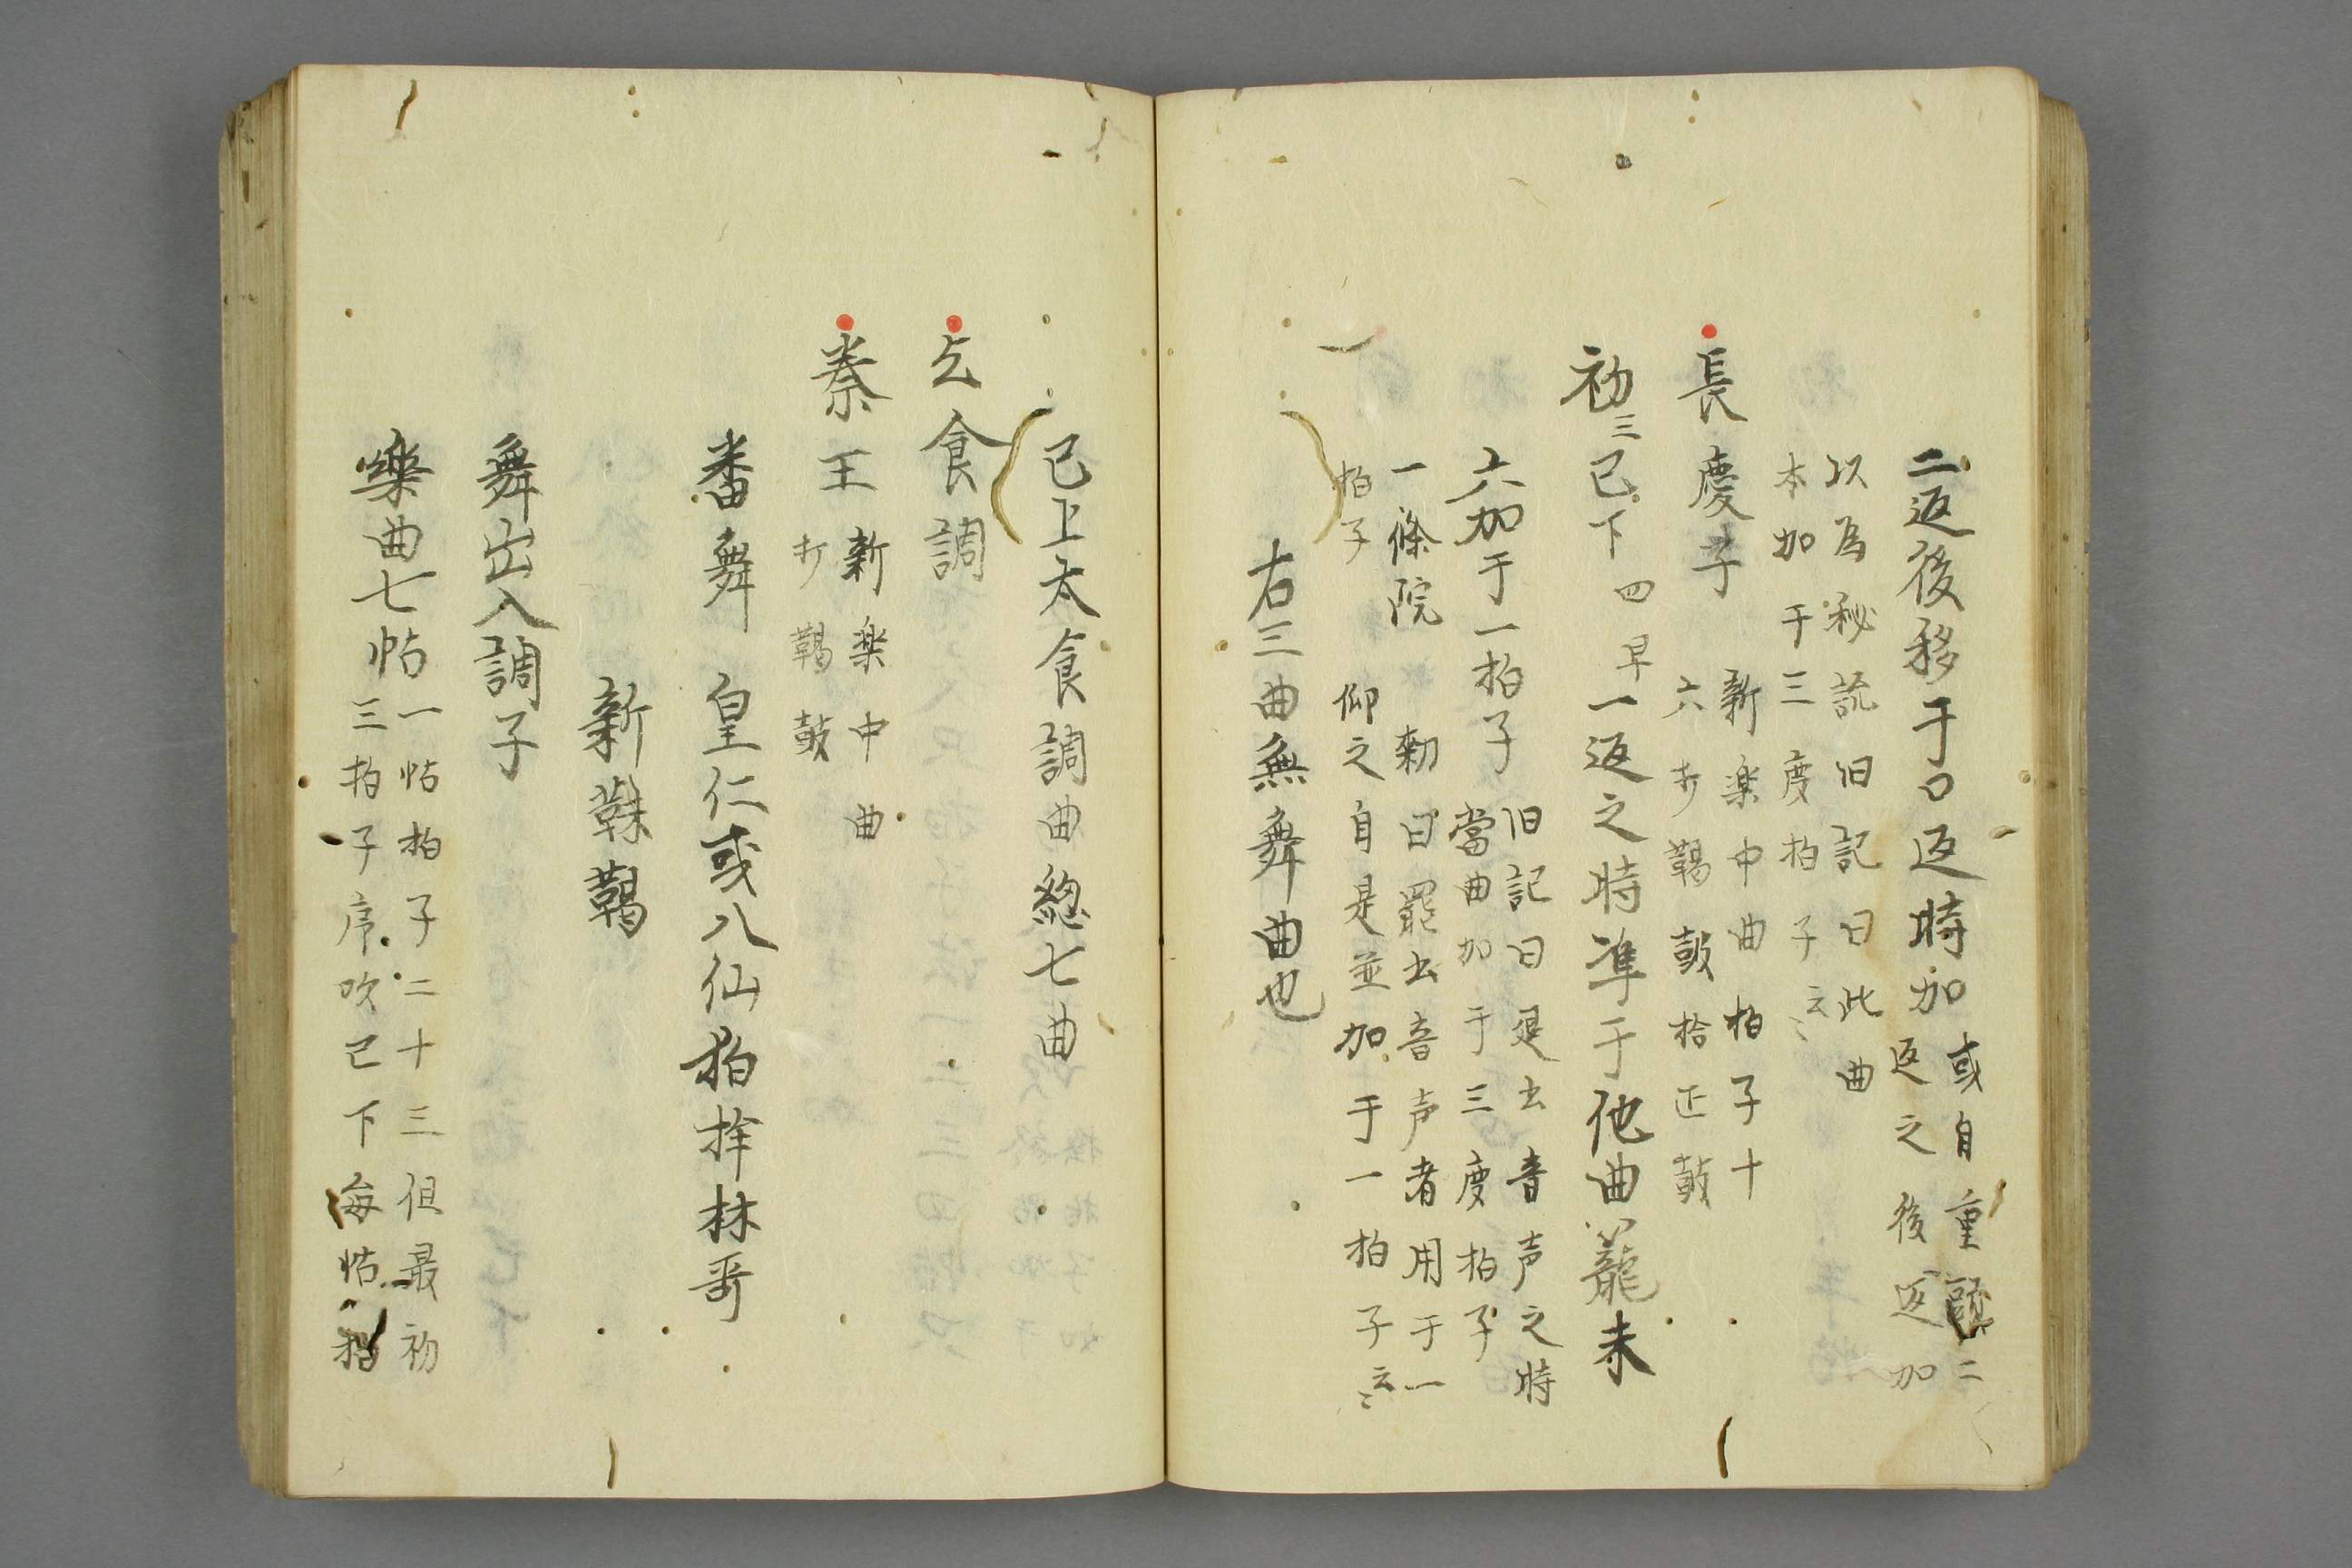 二返後移于口返時加
或自重頭二
返之後返加
以為秘説旧記曰此曲
本加于三度拍子云〻
長慶子
新楽中曲拍子十
六打鞨鼓拾正鼓
初三已下四早一返之時準于他曲籠未
六加于一拍子
旧記曰退出音声之時
當曲加于三度拍子
一條院 勅曰罷出音声者用于一
拍子 仰之自是並加于一拍子云〻
右三曲無舞曲也
已上太食調曲總七曲
乞食調
秦王
新楽中曲
打鞨鼓
番舞 皇仁或八仙狛桙林哥
新靺鞨
舞出入調子
樂曲七帖
一帖拍子二十三但最初
三拍子序吹已下毎帖拍